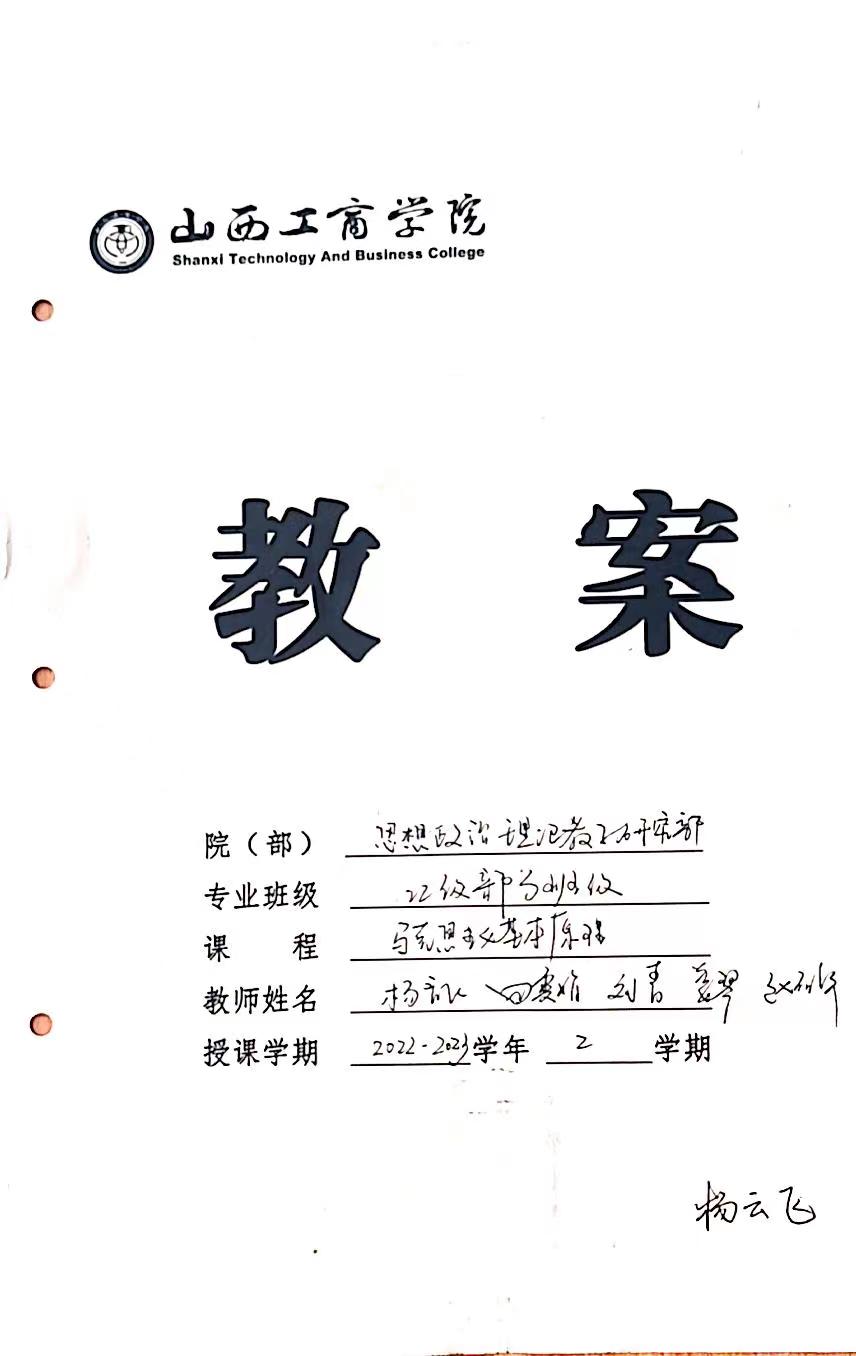 山西工商学院
Shanxi Technology And Business College
教 案
院（部） 思想政治理论教学研究部
专业班级 22级部分班级
课 程 马克思主义基本原理
教师姓名 杨 田 刘青
授课学期 2022-2023学年 2 学期
杨云飞